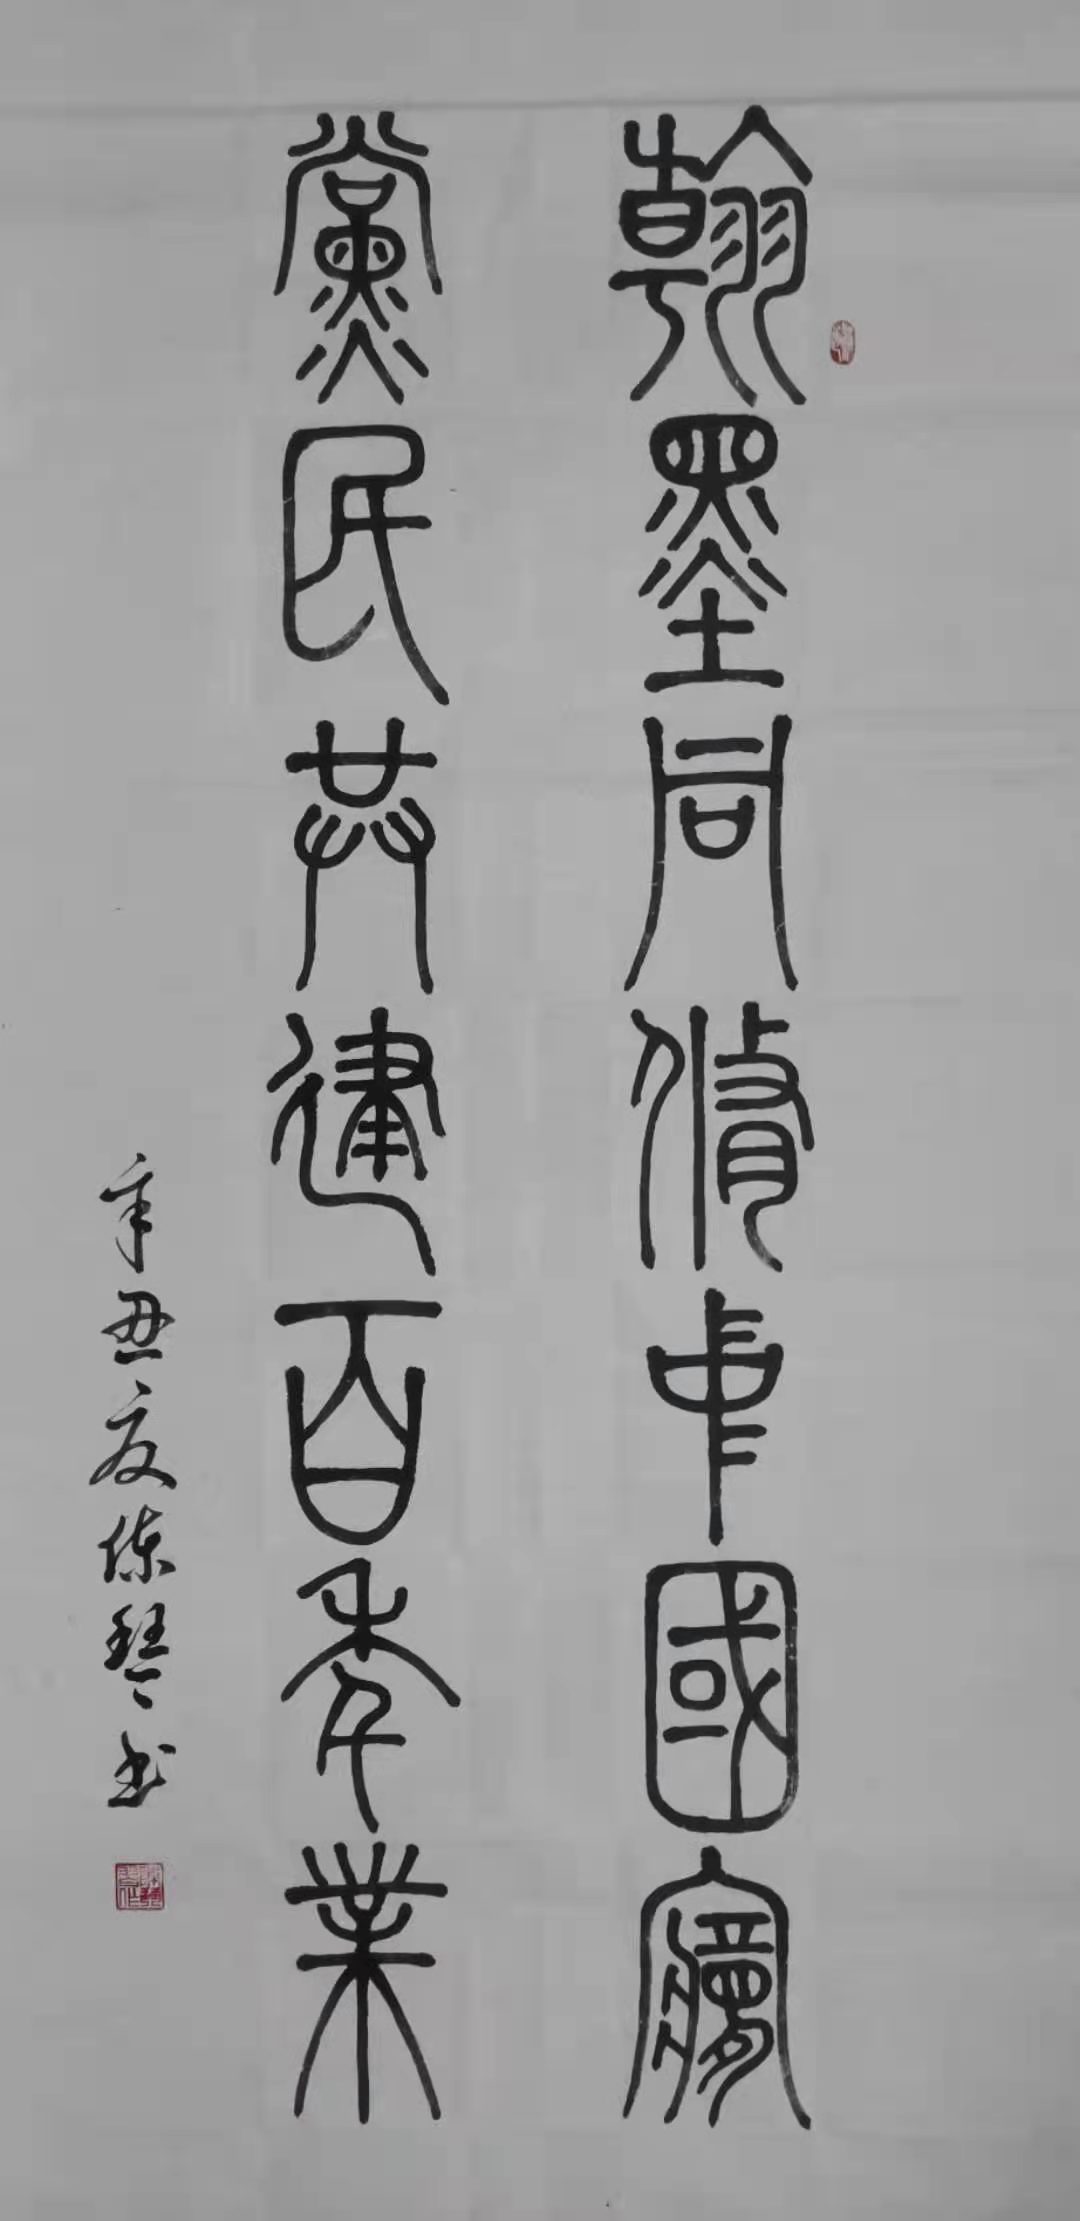 翰墨同脩中國夢
黨民共建百年業
辛丑夏陈琴书